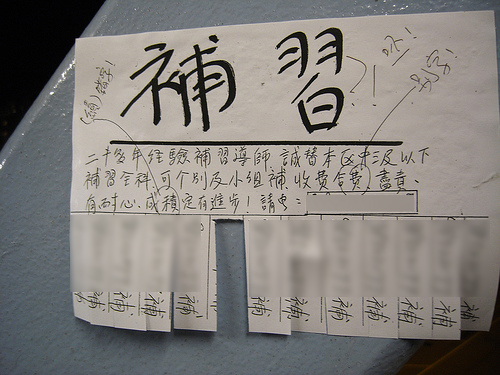 補習
二十多年經驗補習導師,誠替本区中三及以下
補習全科,可个別及小組補,收費合費,盡責、
有耐心,成積定有進步!請电:
(績)錯字!
別字!
補 補 補 補 補 補 補 補 補 補 補